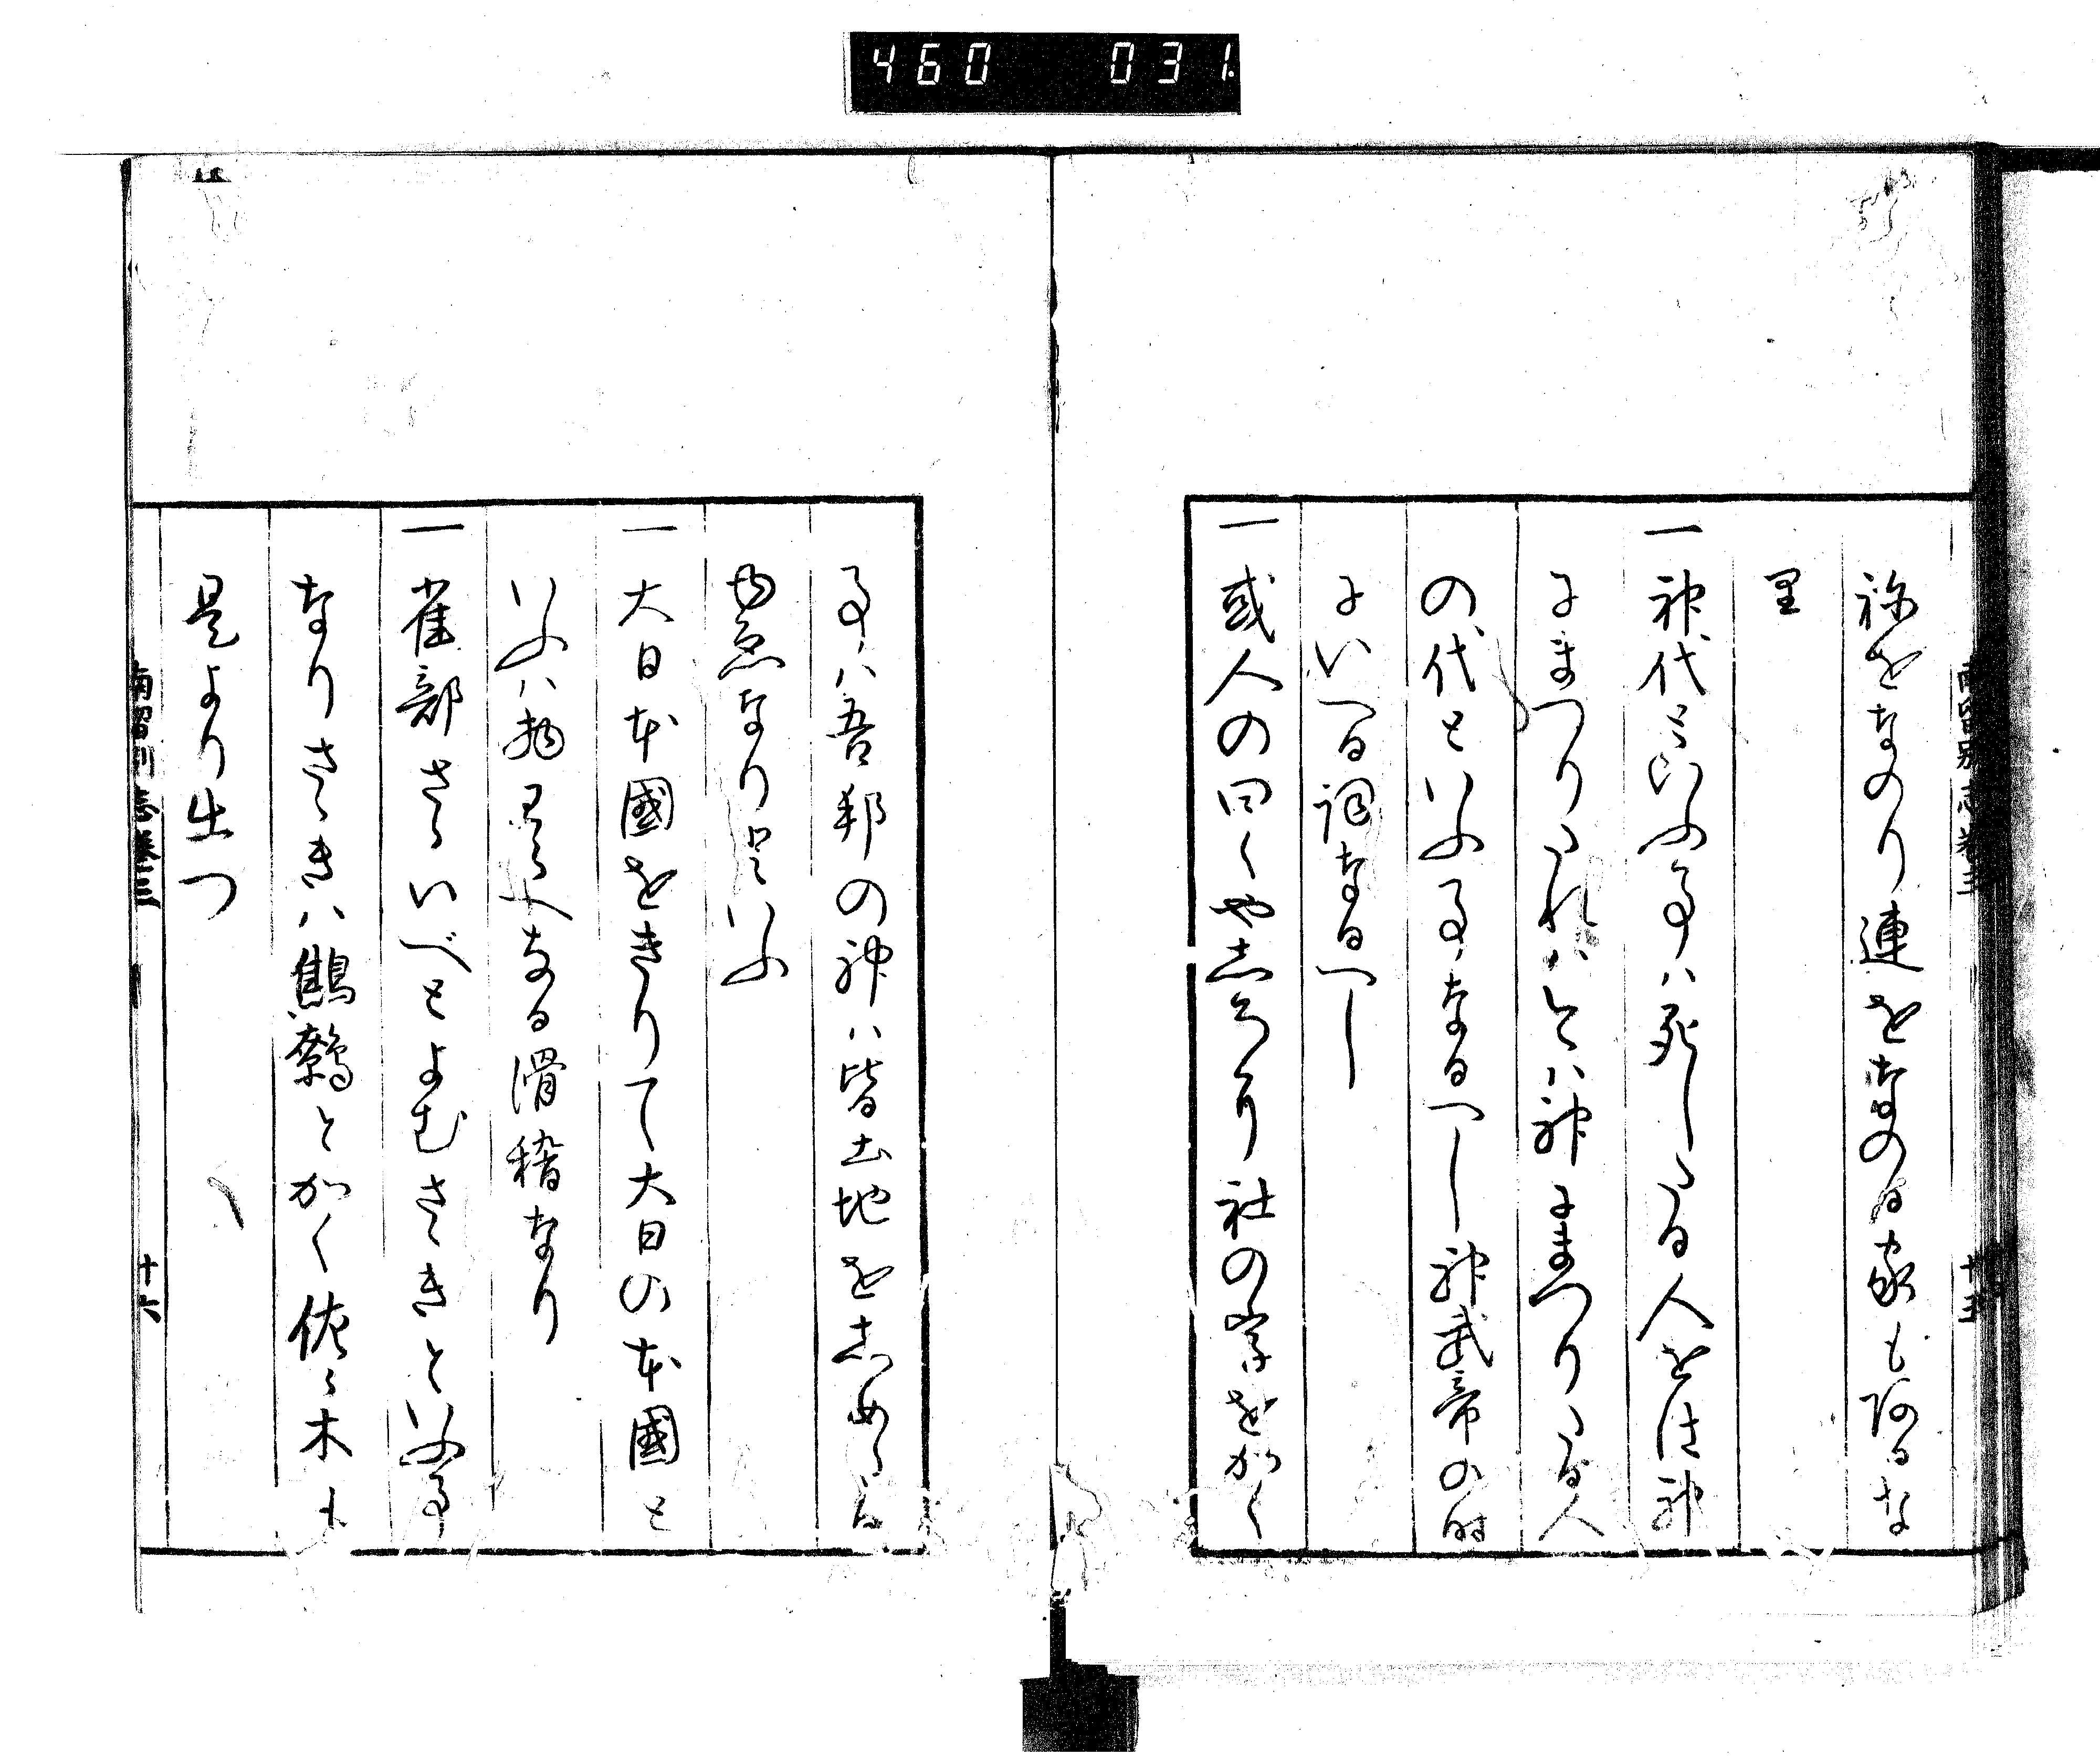 460 031
祢をなのり連をなのる家も阿るな
里
一神代といふ事ハ死したる人を仕神
にまつりたれハ今ハ神にまつりたる人
の代といふ事なるへし神武帝の時
にいへる詞なるへし
一或人の曰くやしろハ社の字をかく
事ハ吾邦の神ハ皆土地をしめたる
ゆゑなりといふ
一大日本國をきりて大日の本國と
いふハ物わらへなる滑稽なり
一雀部さゝいべとよむさゝきといふ事
なりさゝきハ鷦鷯とかく佐々木も
是より出つ
南留別志巻三
十六